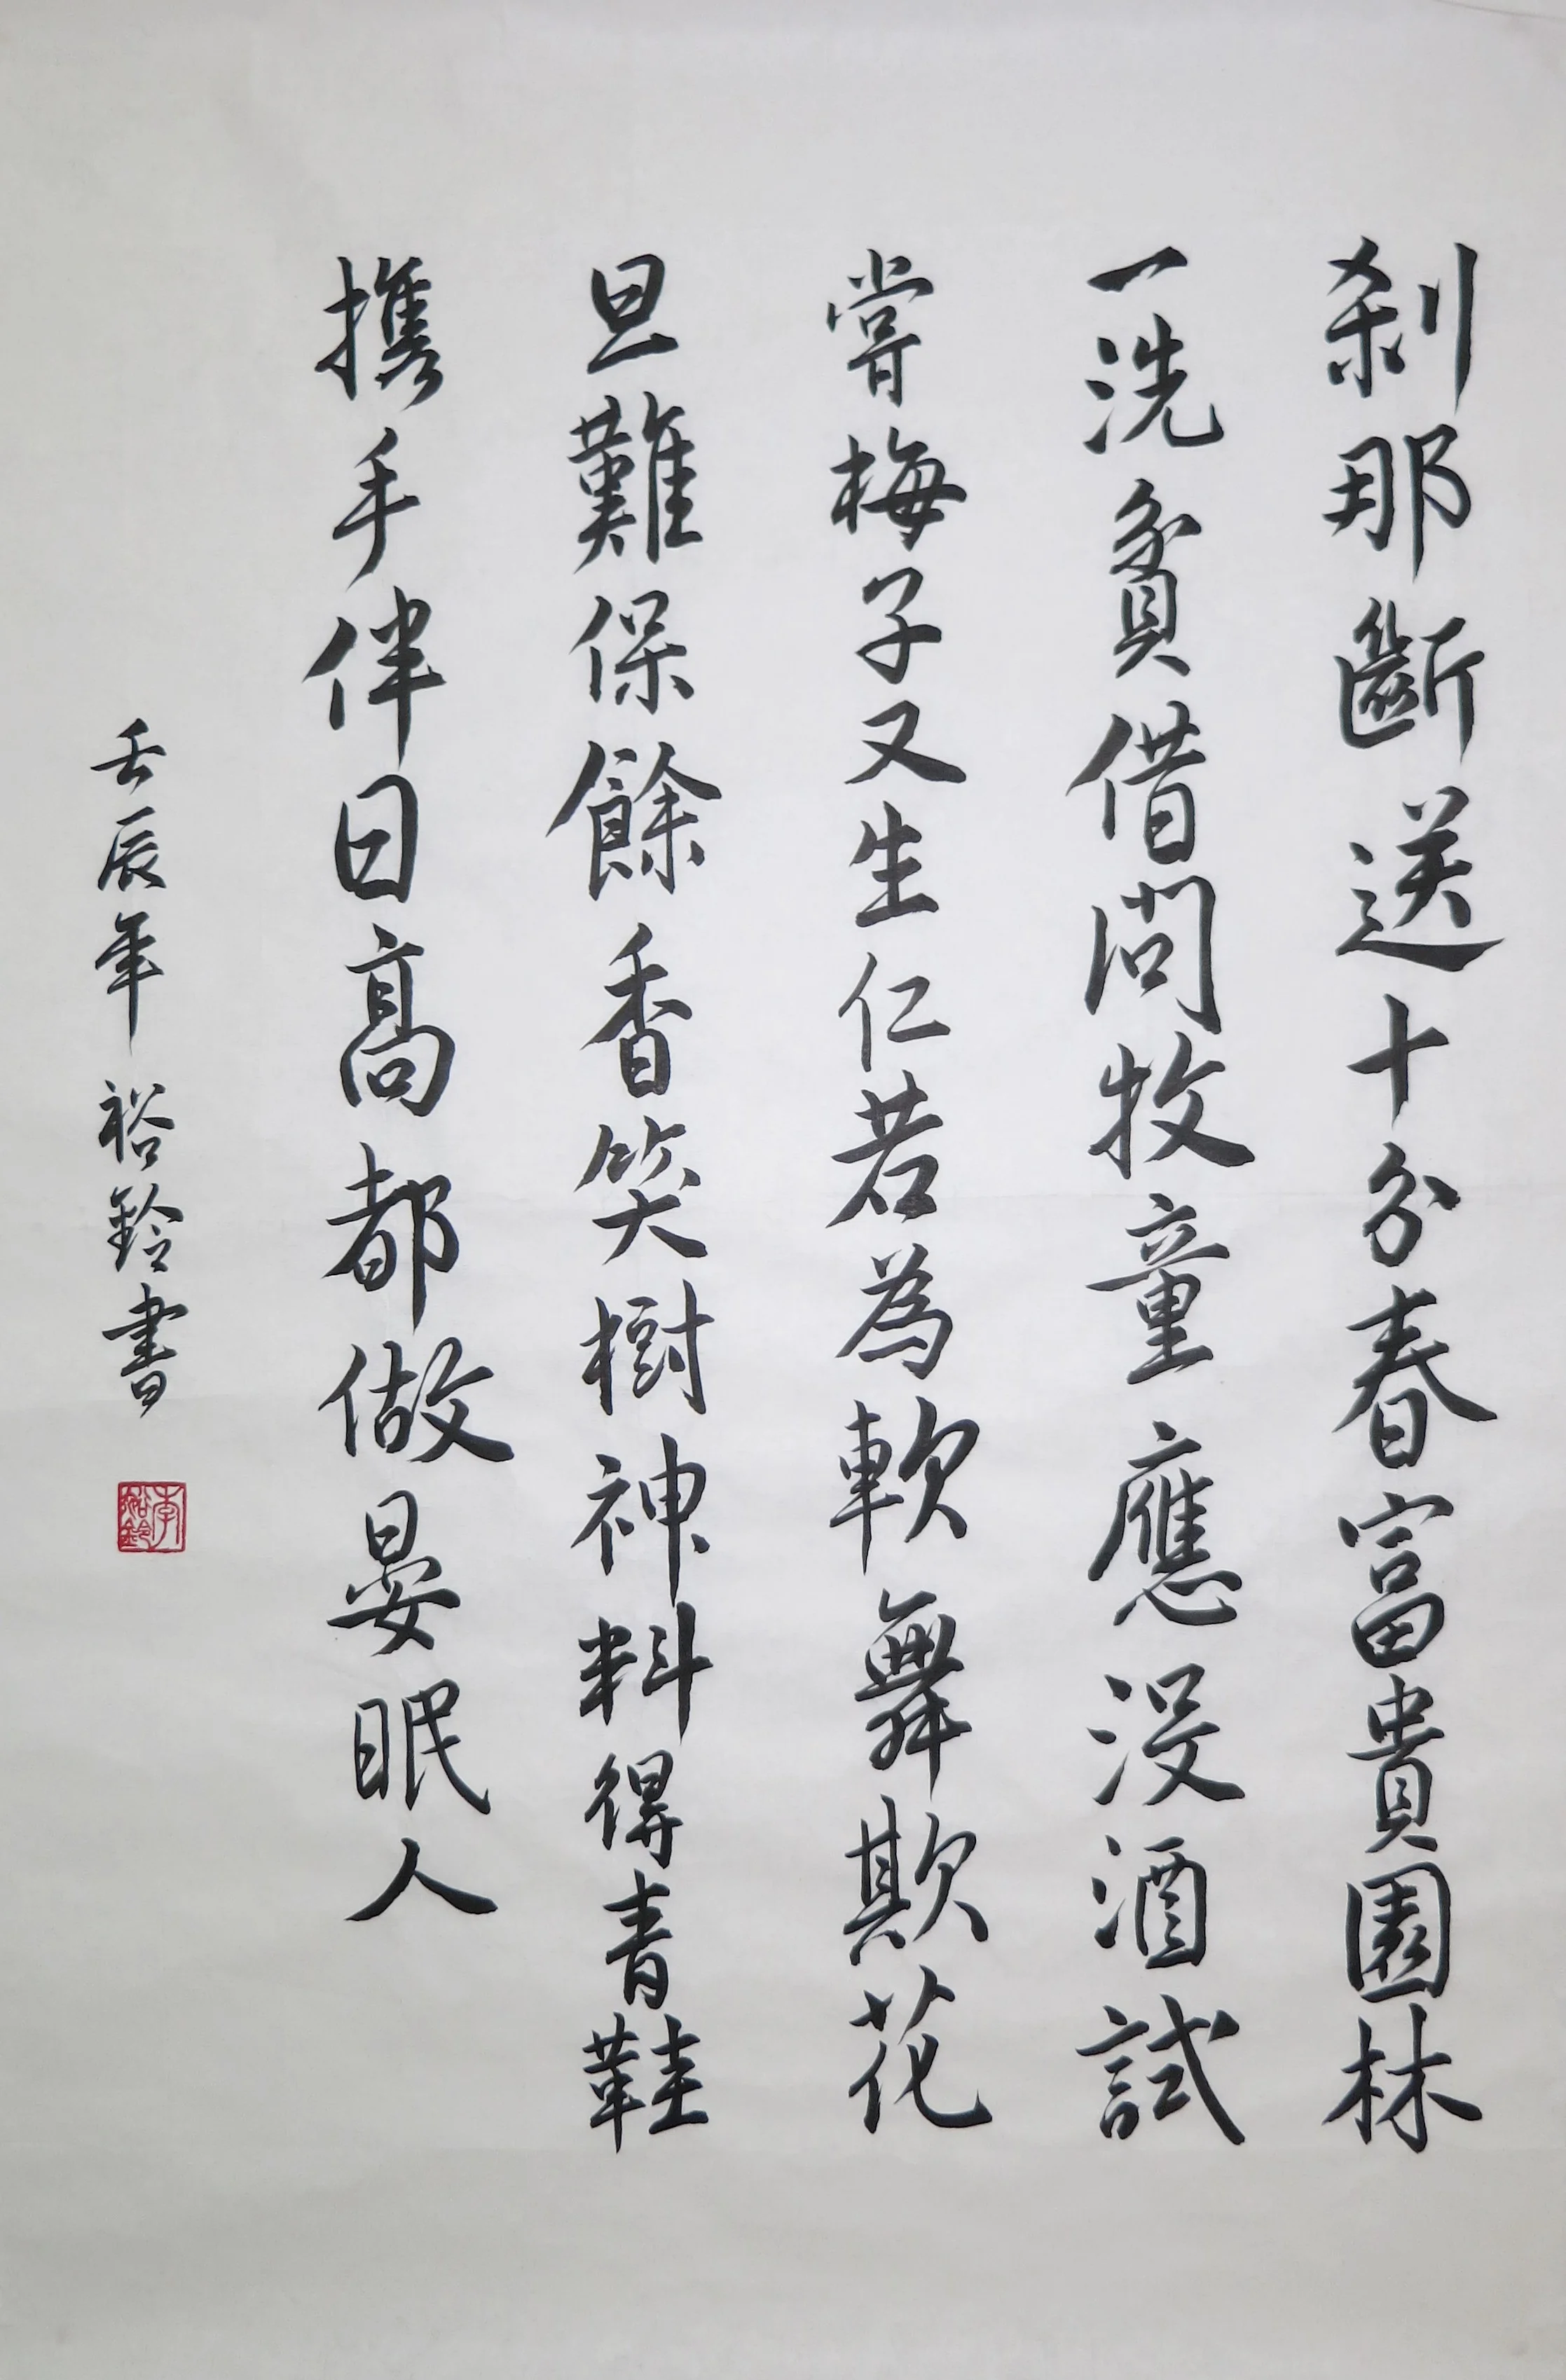 剎那斷送十分春富貴園林
一洗貧借問牧童應沒酒試
嘗梅子又生仁若為軟舞欺花
旦難保餘香笑樹神料得青鞋
攜手伴日高都做晏眠人
壬辰年 裕鈴書
李裕鈴